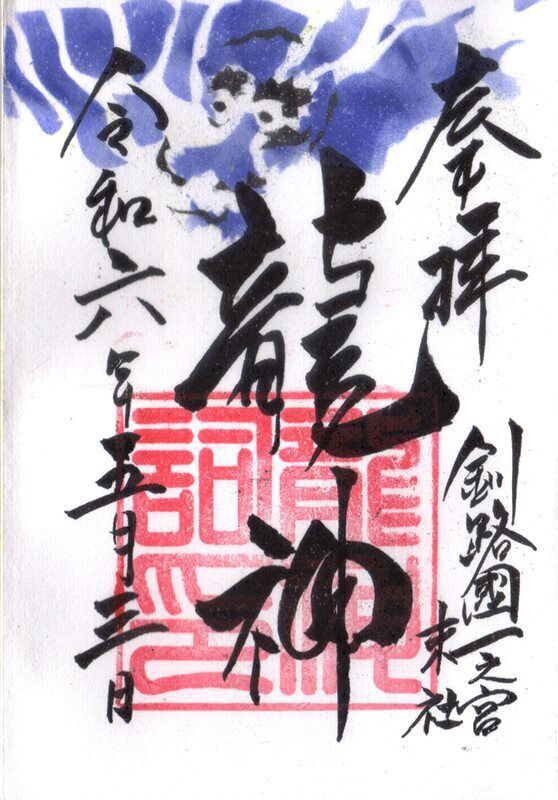 奉拝
釧路國一之宮
末社
龍神
令和六年五月三日